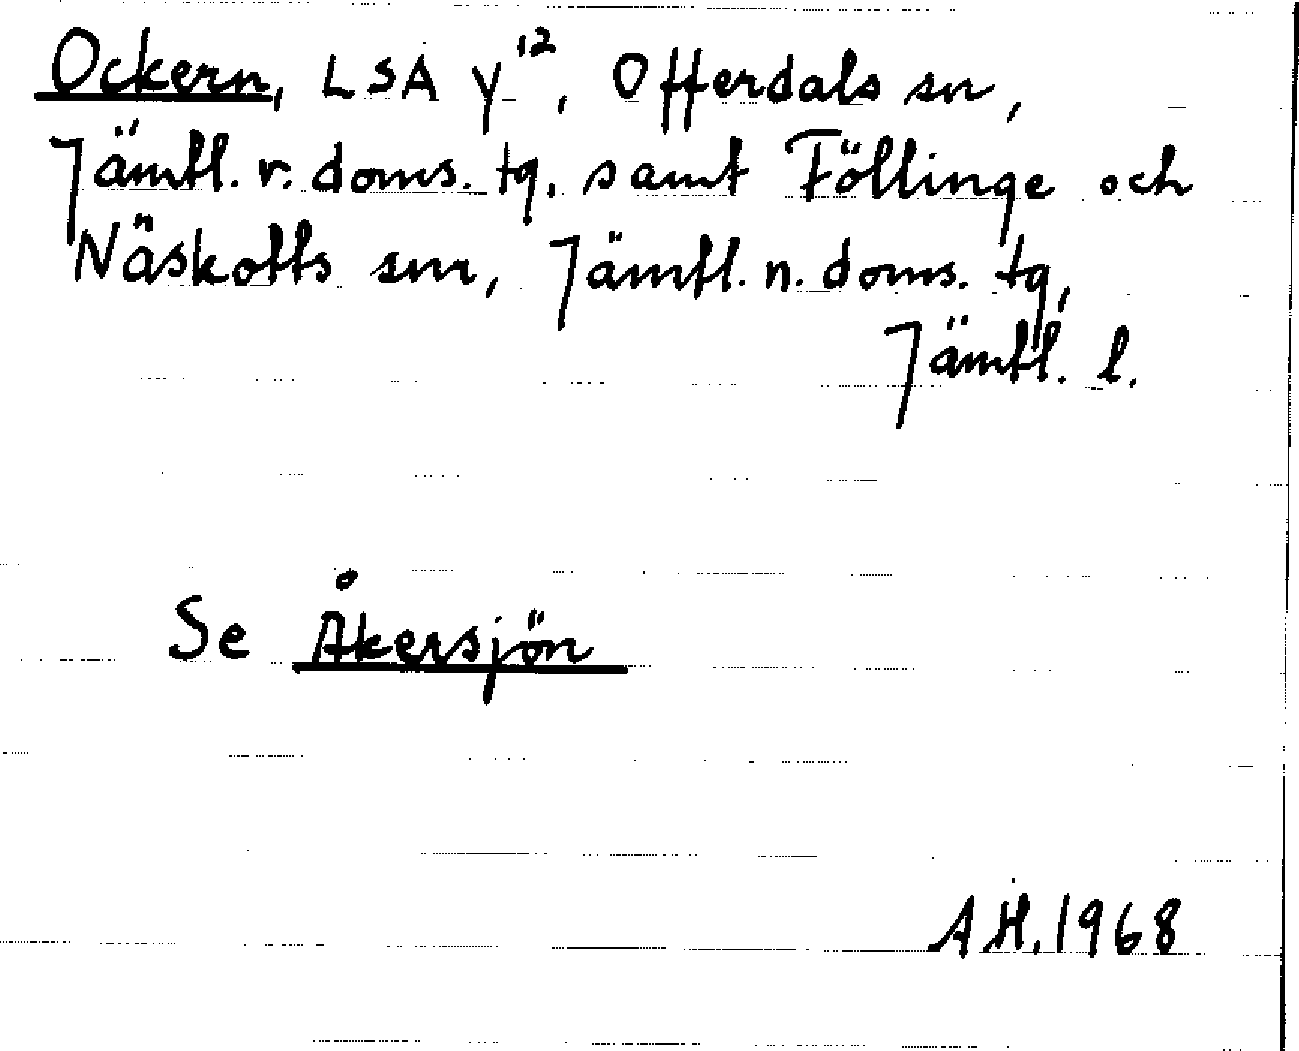 Ockern, LSA y¹², Offerdals sn,
Jämtl. v. doms. tg. samt Föllinge och
Näskotts snr, Jämtl. n. doms. tg,
Jämtl. l.
Se Åkersjön
A H. 1968